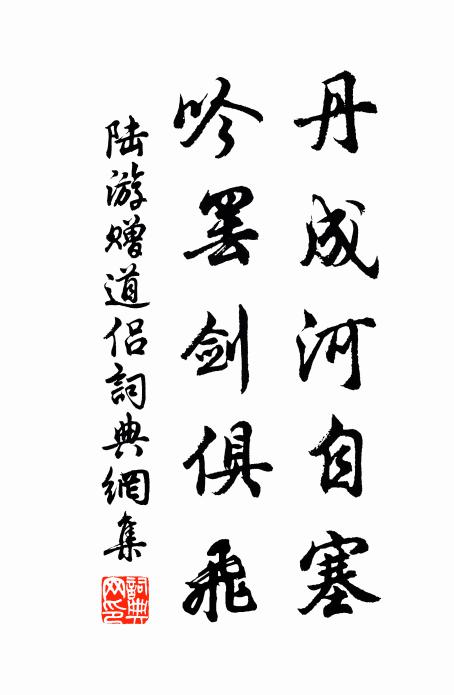 丹成河自塞
吟罢剑俱飛
陆游赠道侣詞典網集
詞典网印